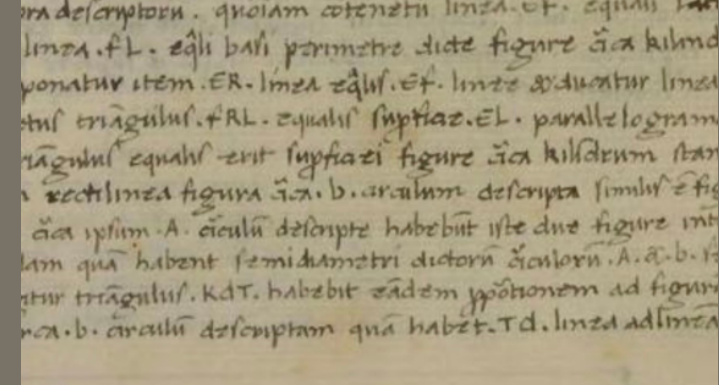 descriptoru . quoiam cotenetu linea . Ef . equali
linea . fL . eq̄li basi perimetre dicte figure c̄ica kilind
ponatur item . ER . linea eq̄lis . Ef . linee & ducatur linea
triāgulus . fRL . equalis supficiei . EL . parallelogram
equalis erit supficiei figure c̄ica kilīdrum
rectilinea figura c̄ica . b . circulum descripta similis ē fig
c̄ica ipsum . A . c̄iculū descripte habebūt iste due figure int
quā habent semidiametri dictorū c̄iculorū . A . & . b .
triāgulus . KdT . habebit eādem ꝓportionem ad figur
. b . circulū descriptam quā habet . Td . linea ad lineā